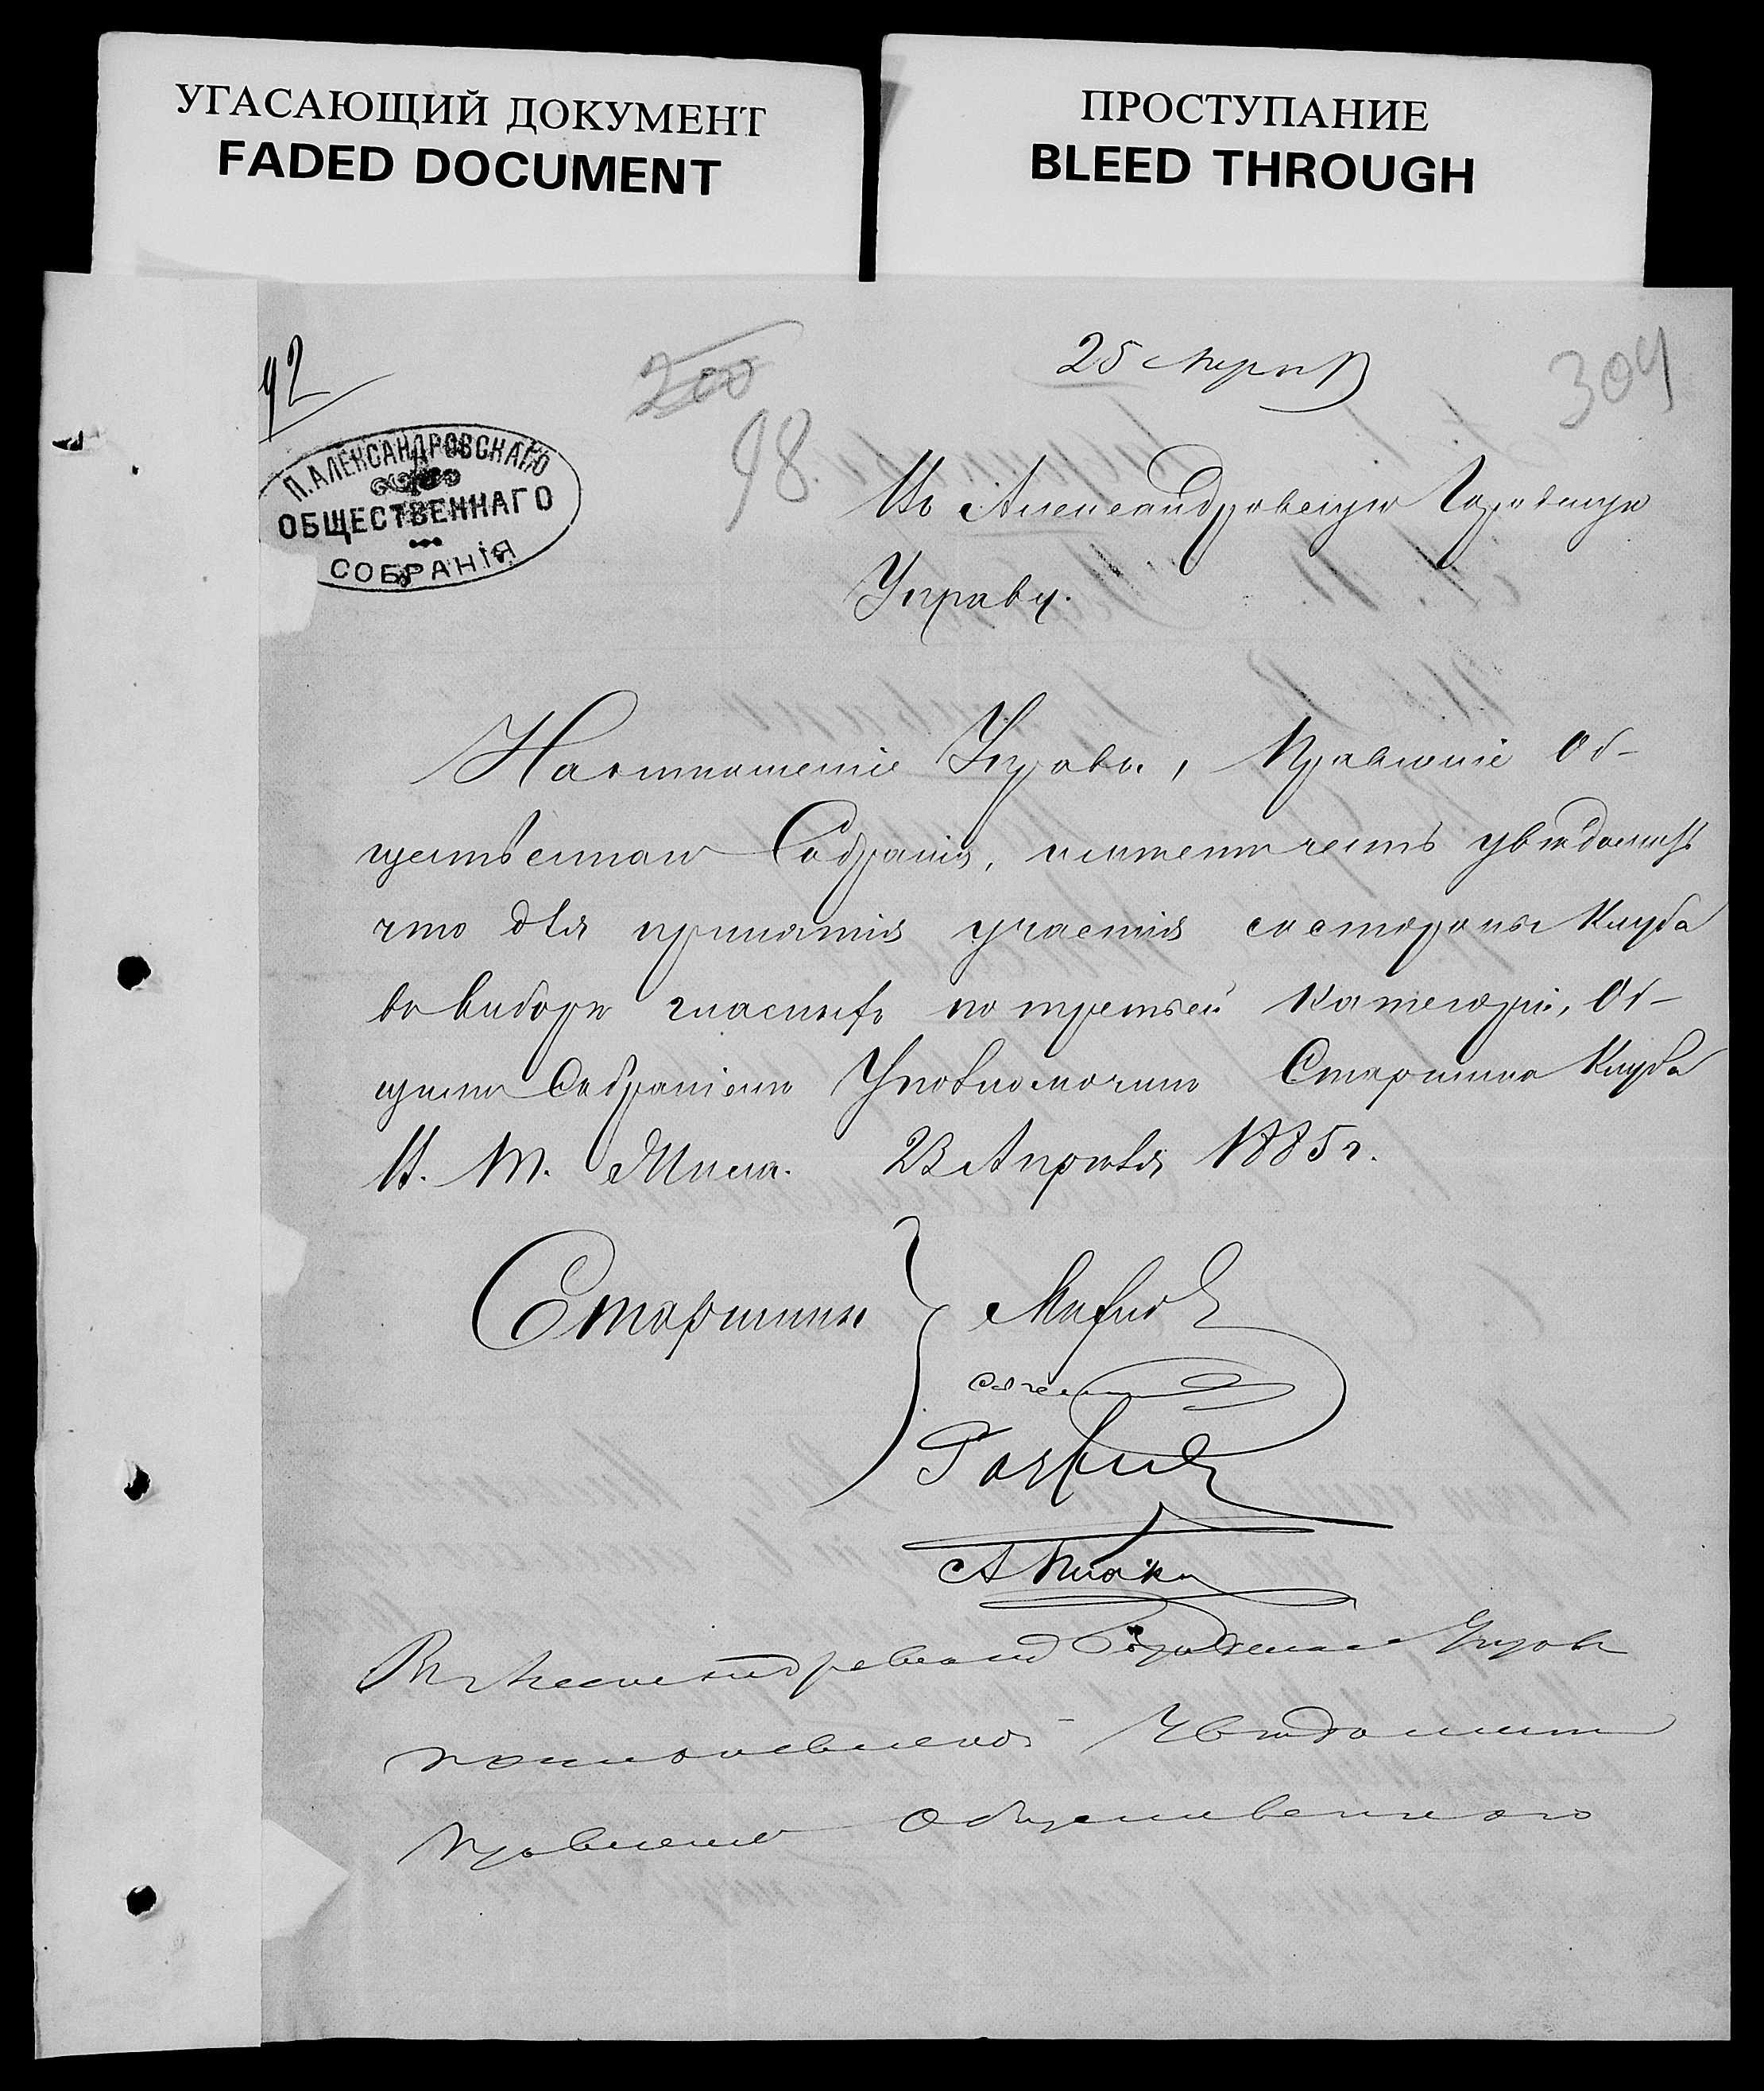 УГАСАЮЩИЙ ДОКУМЕНТ
FADED DOCUMENT
ПРОСТУПАНИЕ
BLEED THROUGH
92
200
25 Апрѣл
304
98
П. АЛЕКСАНДРОВСКАГО
ОБЩЕСТВЕННАГО
СОБРАНІЯ
Въ Александровскую Городскую
Управу.
На отношеніе Управы, Правленіе Об-
щественнаго Собранія, имѣетъ честь увѣдомить
что для принятія участія со стороны Клуба
въ выборѣ гласныхъ по третьей Категоріи, Об-
щимъ Собраніемъ Уполномоченъ Старшина Клуба
23 Апрѣля 1885 г.
Старшины
Городская Управа
Увѣдомить
Правленіе Общественнаго